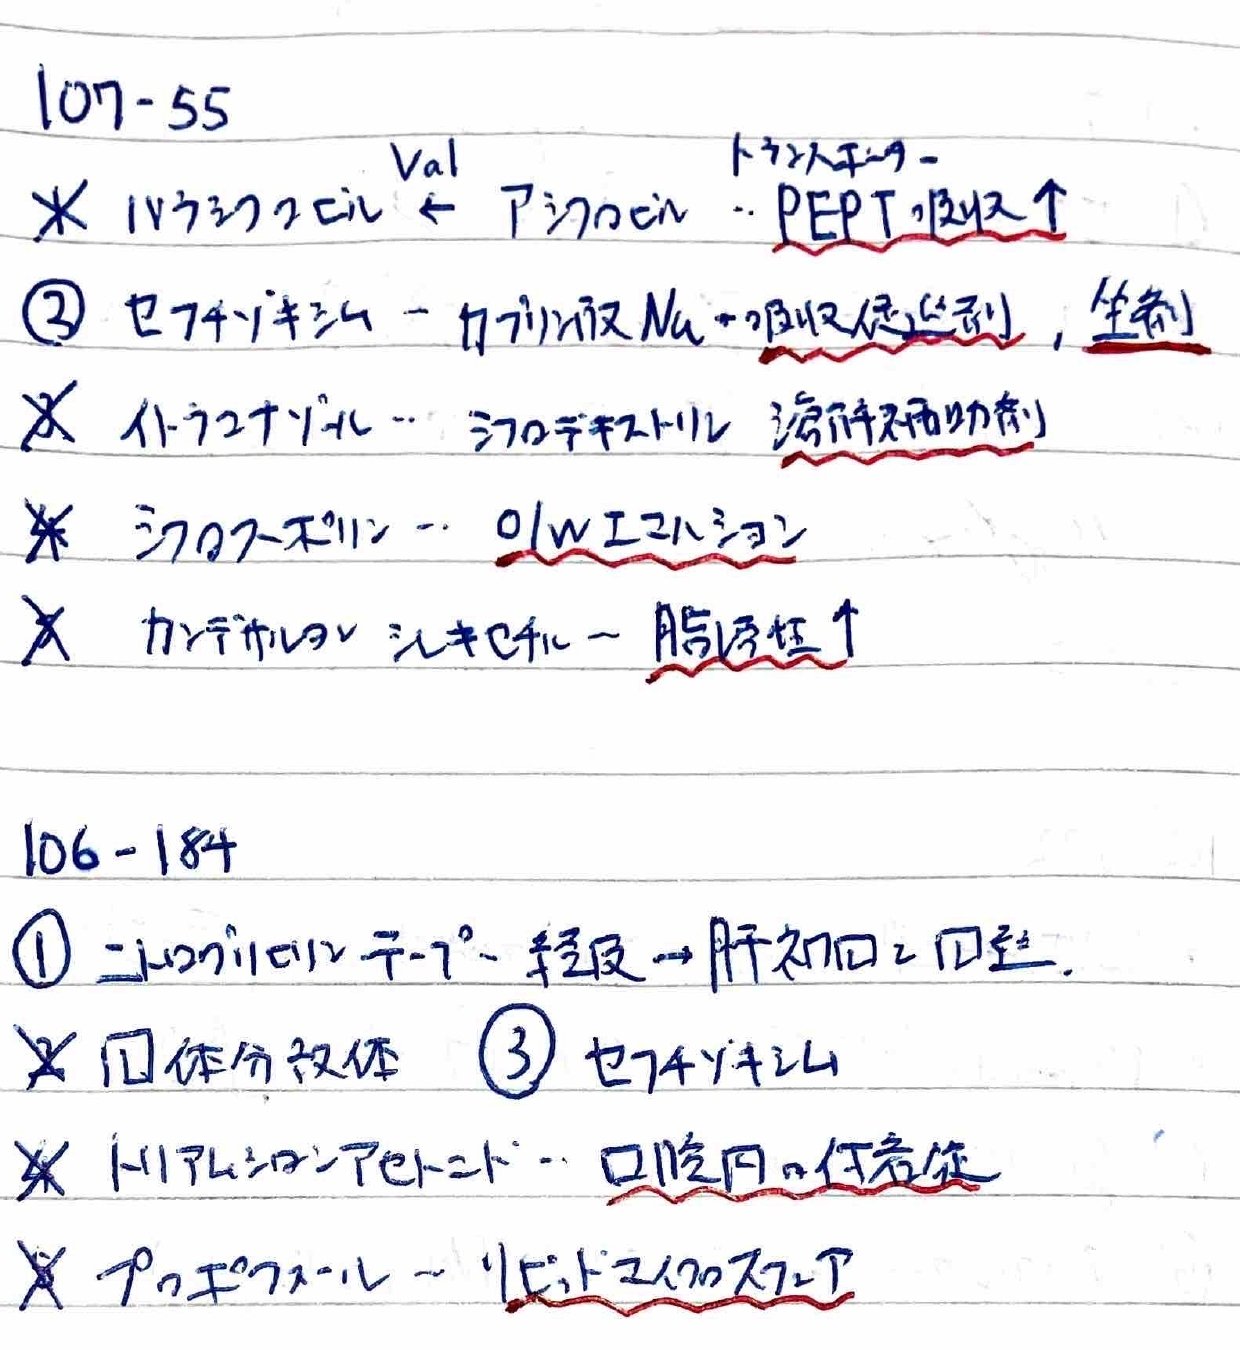 107-55
Val トランスポーター
※ バラシクロビル ← アシクロビル … PEPT 吸収↑
② セフチゾキシム − カプリン酸Na → 吸収促進剤, 坐剤
3 イトラコナゾール … シクロデキストリン 溶解補助剤
4 シクロスポリン … O/Wエマルション
5 カンデサルタン シレキセチル − 脂溶性↑
106-184
① ニトログリセリン テープ − 経皮 → 肝初回を回避.
2 固体分散体 ③ セフチゾキシム
4 トリアムシノロンアセトニド … 口腔内の付着錠
5 プロポフォール − リピッドマイクロスフェア